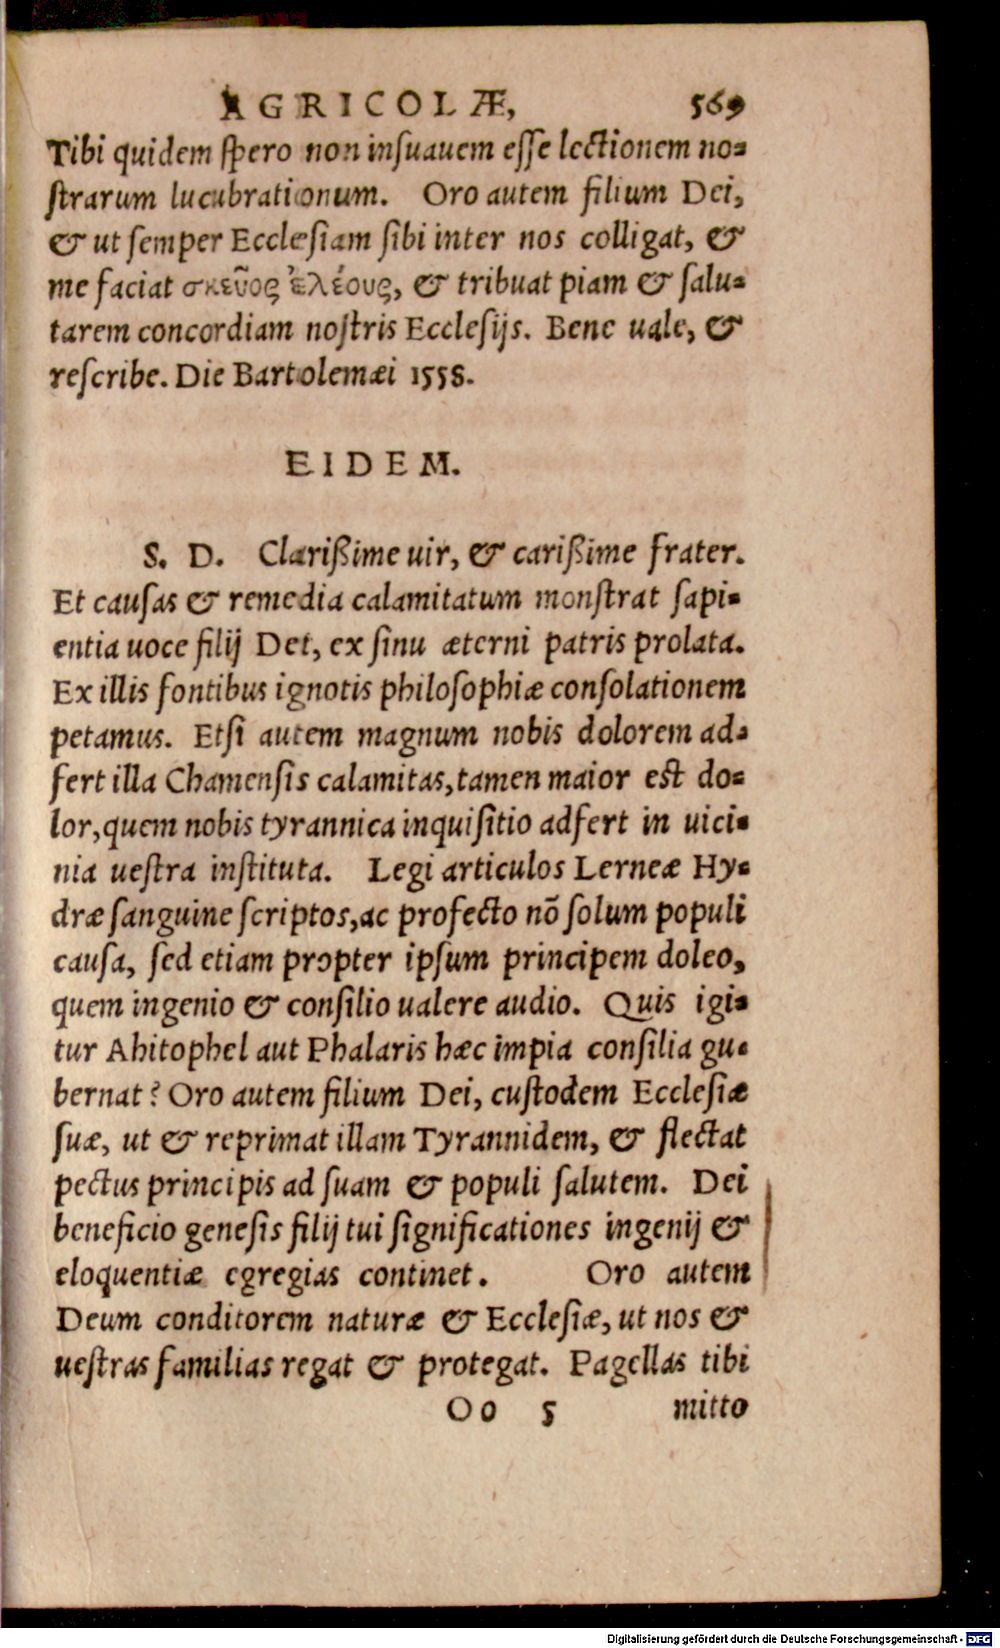 AGRICOLÆ, 569
Tibi quidem ſpero non inſuauem eſſe lectionem no-
ſtrarum lucubrationum. Oro autem filium Dei,
& ut ſemper Eccleſiam ſibi inter nos colligat, &
me faciat σκεῦος ἐλέους, & tribuat piam & ſalu-
tarem concordiam noſtris Eccleſijs. Bene uale, &
reſcribe. Die Bartolemæi 1558.
EIDEM.
S. D. Clarißime uir, & carißime frater.
Et cauſas & remedia calamitatum monſtrat ſapi-
entia uoce filij Det, ex ſinu æterni patris prolata.
Ex illis fontibus ignotis philoſophiæ conſolationem
petamus. Etſi autem magnum nobis dolorem ad-
fert illa Chamenſis calamitas, tamen maior est do-
lor, quem nobis tyrannica inquiſitio adfert in uici-
nia ueſtra inſtituta. Legi articulos Lerneæ Hy-
dræ ſanguine ſcriptos, ac profecto nõ ſolum populi
cauſa, ſed etiam propter ipſum principem doleo,
quem ingenio & conſilio ualere audio. Quis igi-
tur Ahitophel aut Phalaris hæc impia conſilia gu-
bernat? Oro autem filium Dei, cuſtodem Eccleſiæ
ſuæ, ut & reprimat illam Tyrannidem, & flectat
pectus principis ad ſuam & populi ſalutem. Dei
beneficio geneſis filij tui ſignificationes ingenij &
eloquentiæ egregias continet. Oro autem
Deum conditorem naturæ & Eccleſiæ, ut nos &
ueſtras familias regat & protegat. Pagellas tibi
Oo 5 mitto
Digitalisierung gefördert durch die Deutsche Forschungsgemeinschaft - DFG